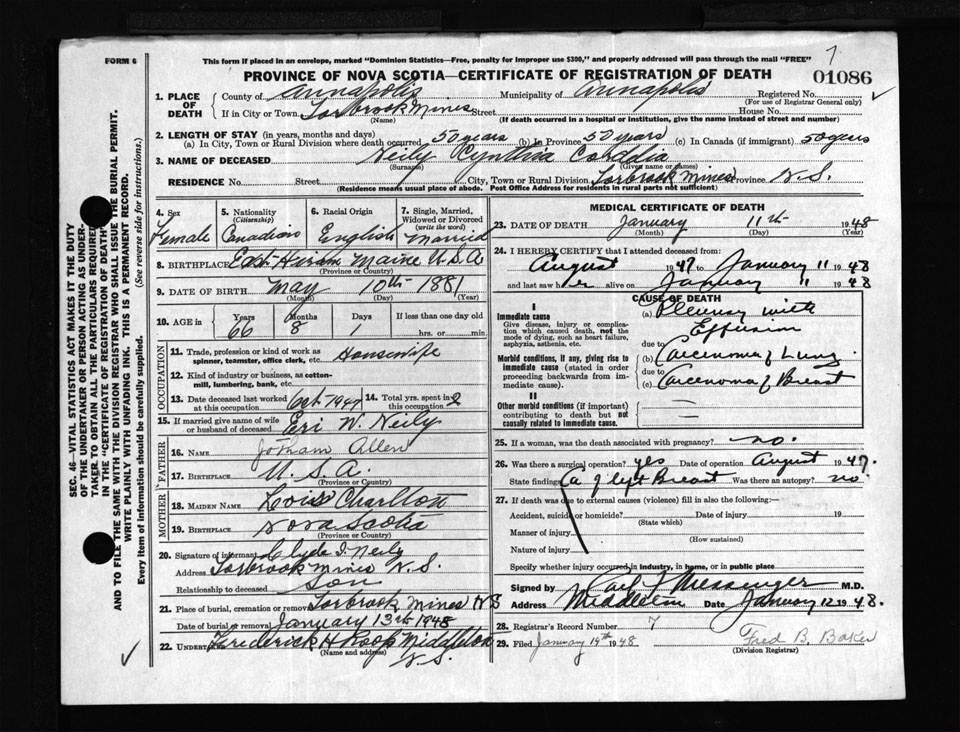 7
FORM 6
This form if placed in an envelope, marked "Dominion Statistics—Free, penalty for improper use $300," and properly addressed will pass through the mail "FREE"
PROVINCE OF NOVA SCOTIA—CERTIFICATE OF REGISTRATION OF DEATH
01086
1. PLACE OF DEATH
County of Annapolis Municipality of Annapolis Registered No.
(For use of Registrar General only)
If in City or Town Torbrook Mines Street House No.
(Name) (If death occurred in a hospital or institution, give the name instead of street and number)
2. LENGTH OF STAY (in years, months and days)
(a) In City, Town or Rural Division where death occurred 50 years (b) In Province 50 years (c) In Canada (if immigrant) 50 years
3. NAME OF DECEASED Neily Cynthia Cordelia
(Surname) (Given name or names)
RESIDENCE No. Street City, Town or Rural Division Torbrook Mines Province N.S.
(Residence means usual place of abode. Post Office Address for residents in rural parts not sufficient)
4. Sex Female
5. Nationality (Citizenship) Canadian
6. Racial Origin English
7. Single, Married, Widowed or Divorced (write the word) Married
8. BIRTHPLACE East Hiram Maine U.S.A
(Province or Country)
9. DATE OF BIRTH May 10th 1881
(Month) (Day) (Year)
10. AGE in Years 66 Months 8 Days 1 If less than one day old hrs. or min.
OCCUPATION
11. Trade, profession or kind of work as spinner, teamster, office clerk, etc. Housewife
12. Kind of industry or business, as cotton-mill, lumbering, bank, etc.
13. Date deceased last worked at this occupation Oct 1947
14. Total yrs. spent in this occupation 2
15. If married give name of wife or husband of deceased Eri W. Neily
FATHER
16. NAME Jotham Allen
17. BIRTHPLACE U.S.A.
(Province or Country)
MOTHER
18. MAIDEN NAME Lois Charlton
19. BIRTHPLACE Nova Scotia
(Province or Country)
20. Signature of informant Clyde I. Neily
Address Torbrook Mines N.S.
Relationship to deceased Son
21. Place of burial, cremation or removal Torbrook Mines NS
Date of burial or removal January 13th 1948
22. UNDERTAKER Frederick H Roop Middleton
(Name and address) N.S.
MEDICAL CERTIFICATE OF DEATH
23. DATE OF DEATH January 11th 1948
(Month) (Day) (Year)
24. I HEREBY CERTIFY that I attended deceased from:
August 1947 to January 11 1948
and last saw her alive on January 11 1948
CAUSE OF DEATH
I
Immediate cause
Give disease, injury or complication which caused death, not the mode of dying, such as heart failure, asphyxia, asthenia, etc.
(a) Pleurisy with Effusion
due to
Morbid conditions, if any, giving rise to immediate cause (stated in order proceeding backwards from immediate cause).
(b) Carcenoma of Lung.
due to
(c) Carcenoma of Breast
II
Other morbid conditions (if important) contributing to death but not causally related to immediate cause.
25. If a woman, was the death associated with pregnancy? no.
26. Was there a surgical operation? yes Date of operation August 1947.
State findings Ca of left Breast Was there an autopsy? no
27. If death was due to external causes (violence) fill in also the following:—
Accident, suicide or homicide? Date of injury 19
(State which)
Manner of injury
(How sustained)
Nature of injury
Specify whether injury occurred in industry, in home, or in public place
Signed by Messenger M.D.
Address Middleton Date January 12 1948.
28. Registrar's Record Number 7
29. Filed January 14th 1948 Fred B. Baker
(Division Registrar)
SEC. 46—VITAL STATISTICS ACT MAKES IT THE DUTY
OF THE UNDERTAKER OR PERSON ACTING AS UNDER-
TAKER TO OBTAIN ALL THE PARTICULARS REQUIRED
IN THE "CERTIFICATE OF REGISTRATION OF DEATH"
AND TO FILE THE SAME WITH THE DIVISION REGISTRAR WHO SHALL ISSUE THE BURIAL PERMIT.
WRITE PLAINLY WITH UNFADING INK. THIS IS A PERMANENT RECORD.
Every item of information should be carefully supplied. (See reverse side for instructions.)